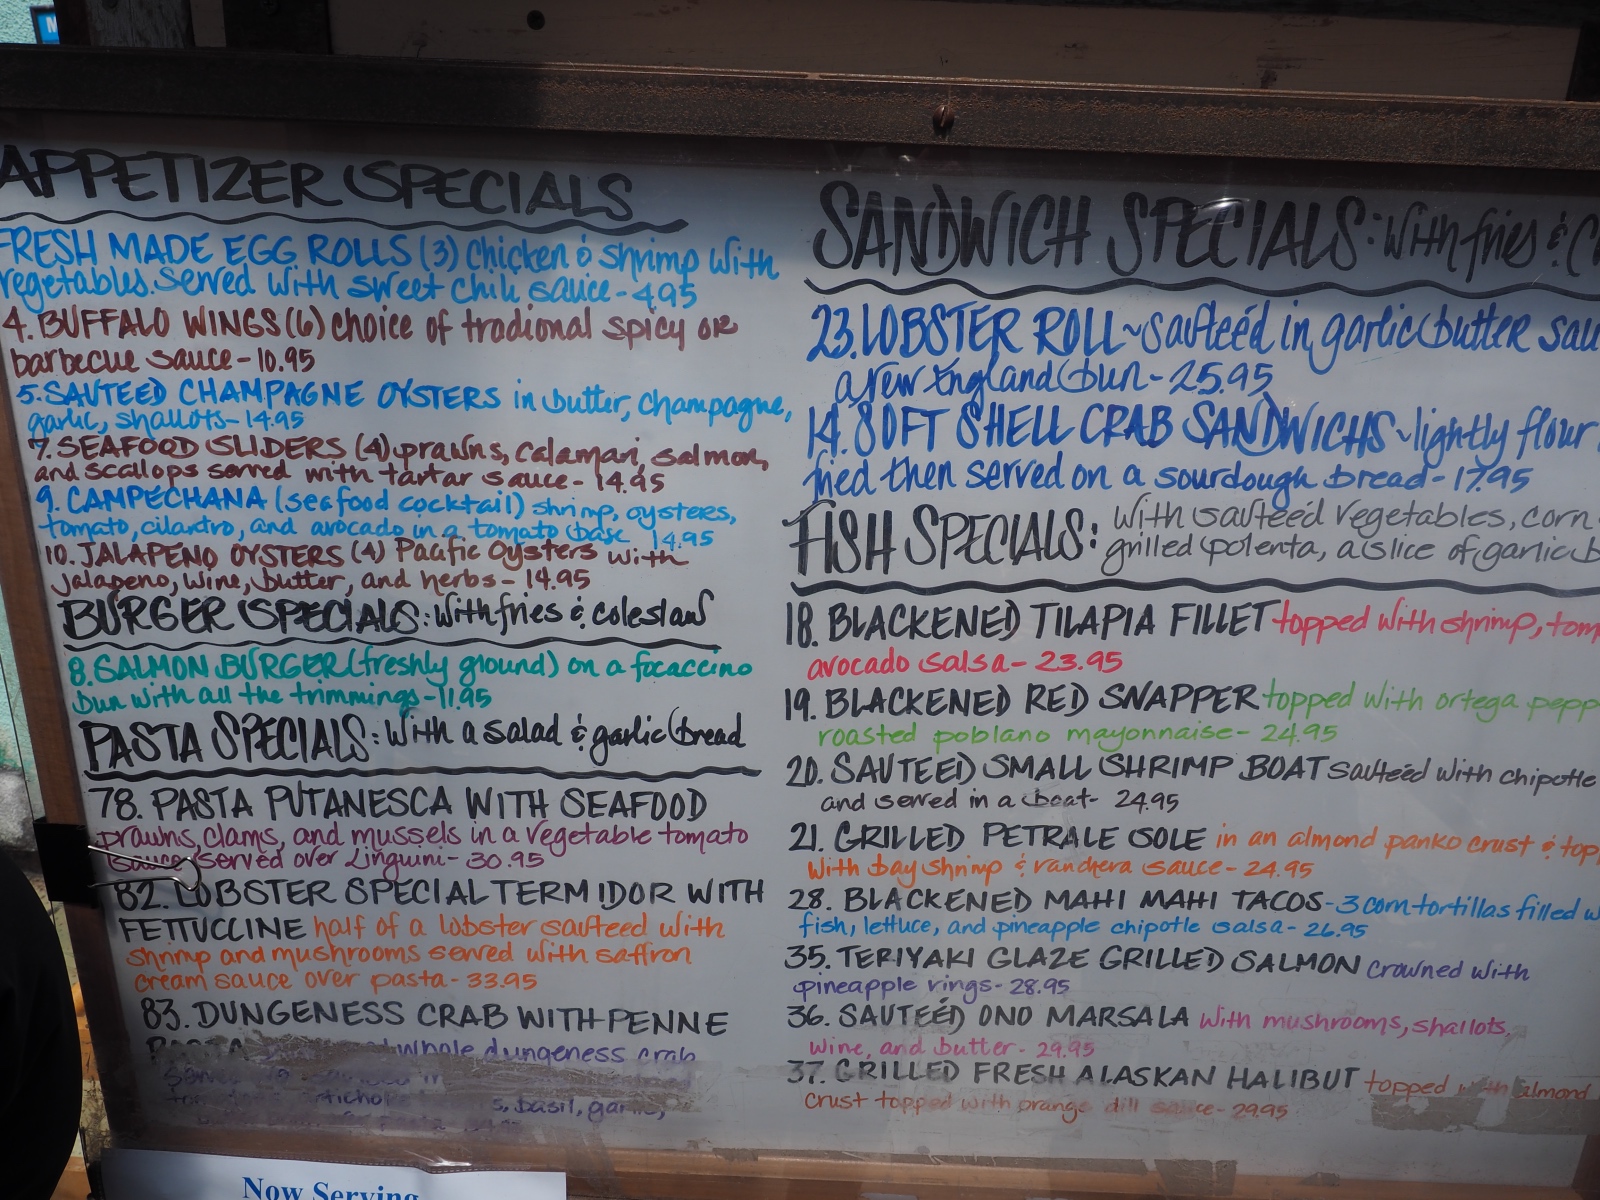 APPETIZER SPECIALS
FRESH MADE EGG ROLLS (3) chicken & shrimp with
vegetables. Served with sweet chili sauce - 4.95
4. BUFFALO WINGS (6) choice of tradional spicy or
barbecue sauce - 10.95
5. SAUTEED CHAMPAGNE OYSTERS in butter, champagne,
garlic, shallots - 14.95
7. SEAFOOD SLIDERS (4) prawns, calamari, salmon,
and scallops served with tartar sauce - 14.95
9. CAMPECHANA (seafood cocktail) shrimp, oysters,
tomato, cilantro, and avocado in a tomato base 14.95
10. JALAPENO OYSTERS (4) Pacific Oysters with
jalapeno, wine, butter, and herbs - 14.95
BURGER SPECIALS: with fries & coleslaw
8. SALMON BURGER (freshly ground) on a focaccino
bun with all the trimmings - 11.95
PASTA SPECIALS: with a salad & garlic bread
78. PASTA PUTANESCA WITH SEAFOOD
prawns, clams, and mussels in a vegetable tomato
sauce served over Linguini - 30.95
82. LOBSTER SPECIAL TERMIDOR WITH
FETTUCCINE half of a lobster sauteed with
shrimp and mushrooms served with saffron
cream sauce over pasta - 33.95
83. DUNGENESS CRAB WITH PENNE
PASTA whole dungeness crab
basil, garlic,
Now Serving
SANDWICH SPECIALS: with fries &
23. LOBSTER ROLL ~ sautéed in garlic butter
a New England bun - 25.95
14. SOFT SHELL CRAB SANDWICHS ~ lightly flour
fried then served on a sourdough bread - 17.95
FISH SPECIALS: with sautéed vegetables, corn
grilled polenta, a slice of garlic
18. BLACKENED TILAPIA FILLET topped with shrimp,
avocado salsa - 23.95
19. BLACKENED RED SNAPPER topped with ortega
roasted poblano mayonnaise - 24.95
20. SAUTEED SMALL SHRIMP BOAT sautéed with chipotle
and served in a boat - 24.95
21. GRILLED PETRALE SOLE in an almond panko crust &
with bay shrimp & ranchera sauce - 24.95
28. BLACKENED MAHI MAHI TACOS - 3 corn tortillas filled
fish, lettuce, and pineapple chipotle salsa - 26.95
35. TERIYAKI GLAZE GRILLED SALMON crowned with
pineapple rings - 28.95
36. SAUTEÉD ONO MARSALA with mushrooms, shallots,
wine, and butter - 29.95
37. GRILLED FRESH ALASKAN HALIBUT topped with almond
crust topped with orange dill sauce - 29.95